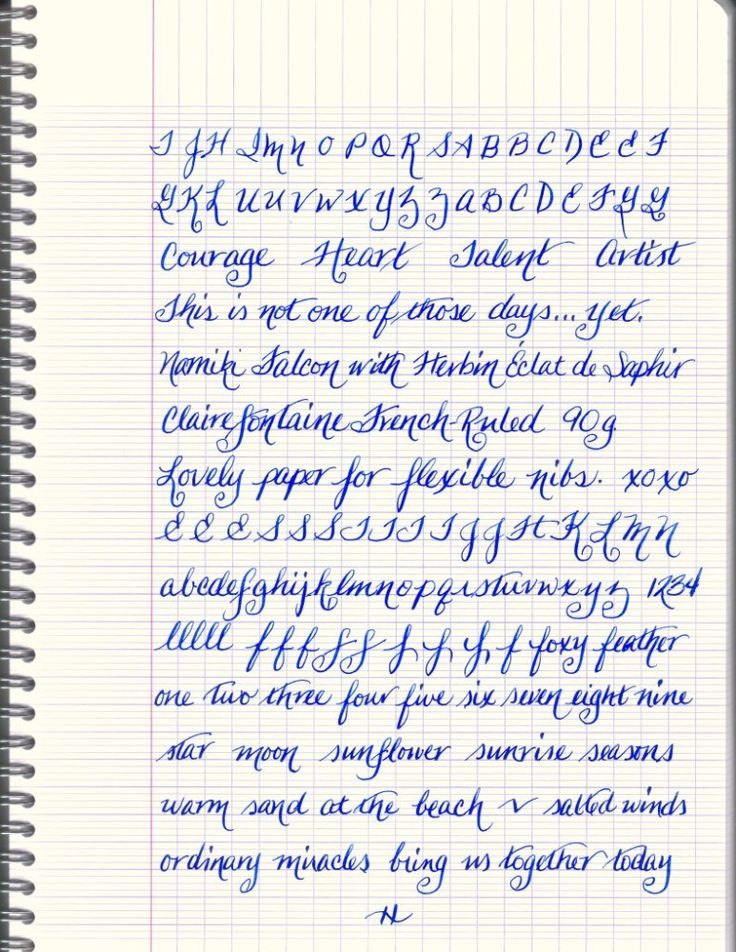 I J H I M N O P Q R S A B B C D E E F
G K L U U V W X Y Z Z A B C D E F Y Y
Courage Heart Talent Artist
This is not one of those days... yet.
Namiki Falcon with Herbin Éclat de Saphir
Clairefontaine French-Ruled 90g
Lovely paper for flexible nibs. xoxo
E E E S S S I I I I J J H K L M N
abcdefghijklmnopqrstuvwxyz 1234
lllll f f f f f f f f f foxy feather
one two three four five six seven eight nine
star moon sunflower sunrise seasons
warm sand at the beach v salted winds
ordinary miracles bring us together today